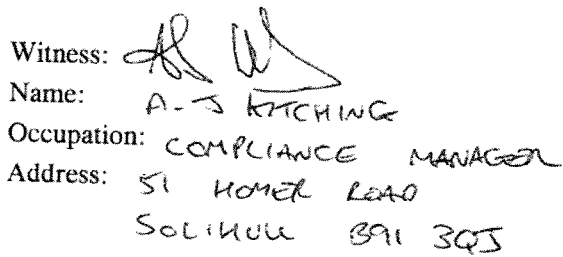 Witness:
Name: A-J KITCHING
Occupation: COMPLIANCE MANAGER
Address: 51 HOMER ROAD
SOLIHULL B91 3QJ